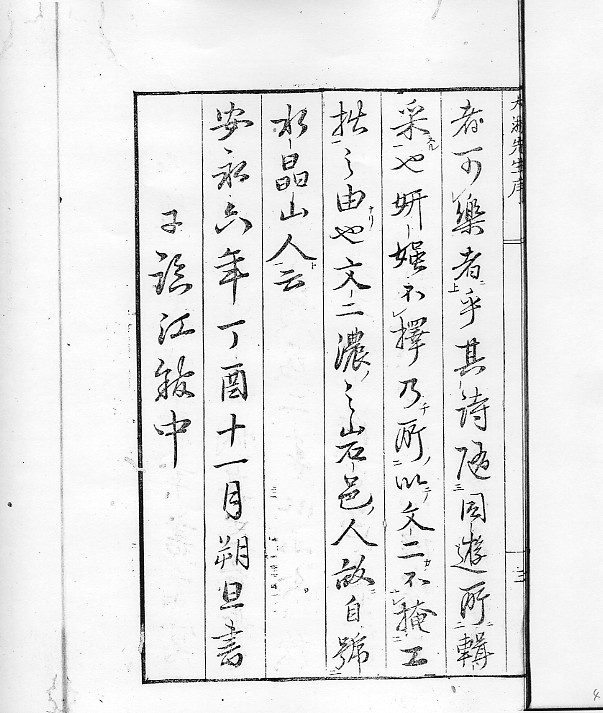 先生序
三
者可樂者乎其詩随同遊所輯
采也妍媸不擇乃所以文二不掩工
拙之由也文二濃之山石邑人故自號
水晶山人云
安永六年丁酉十一月朔旦書
江 中